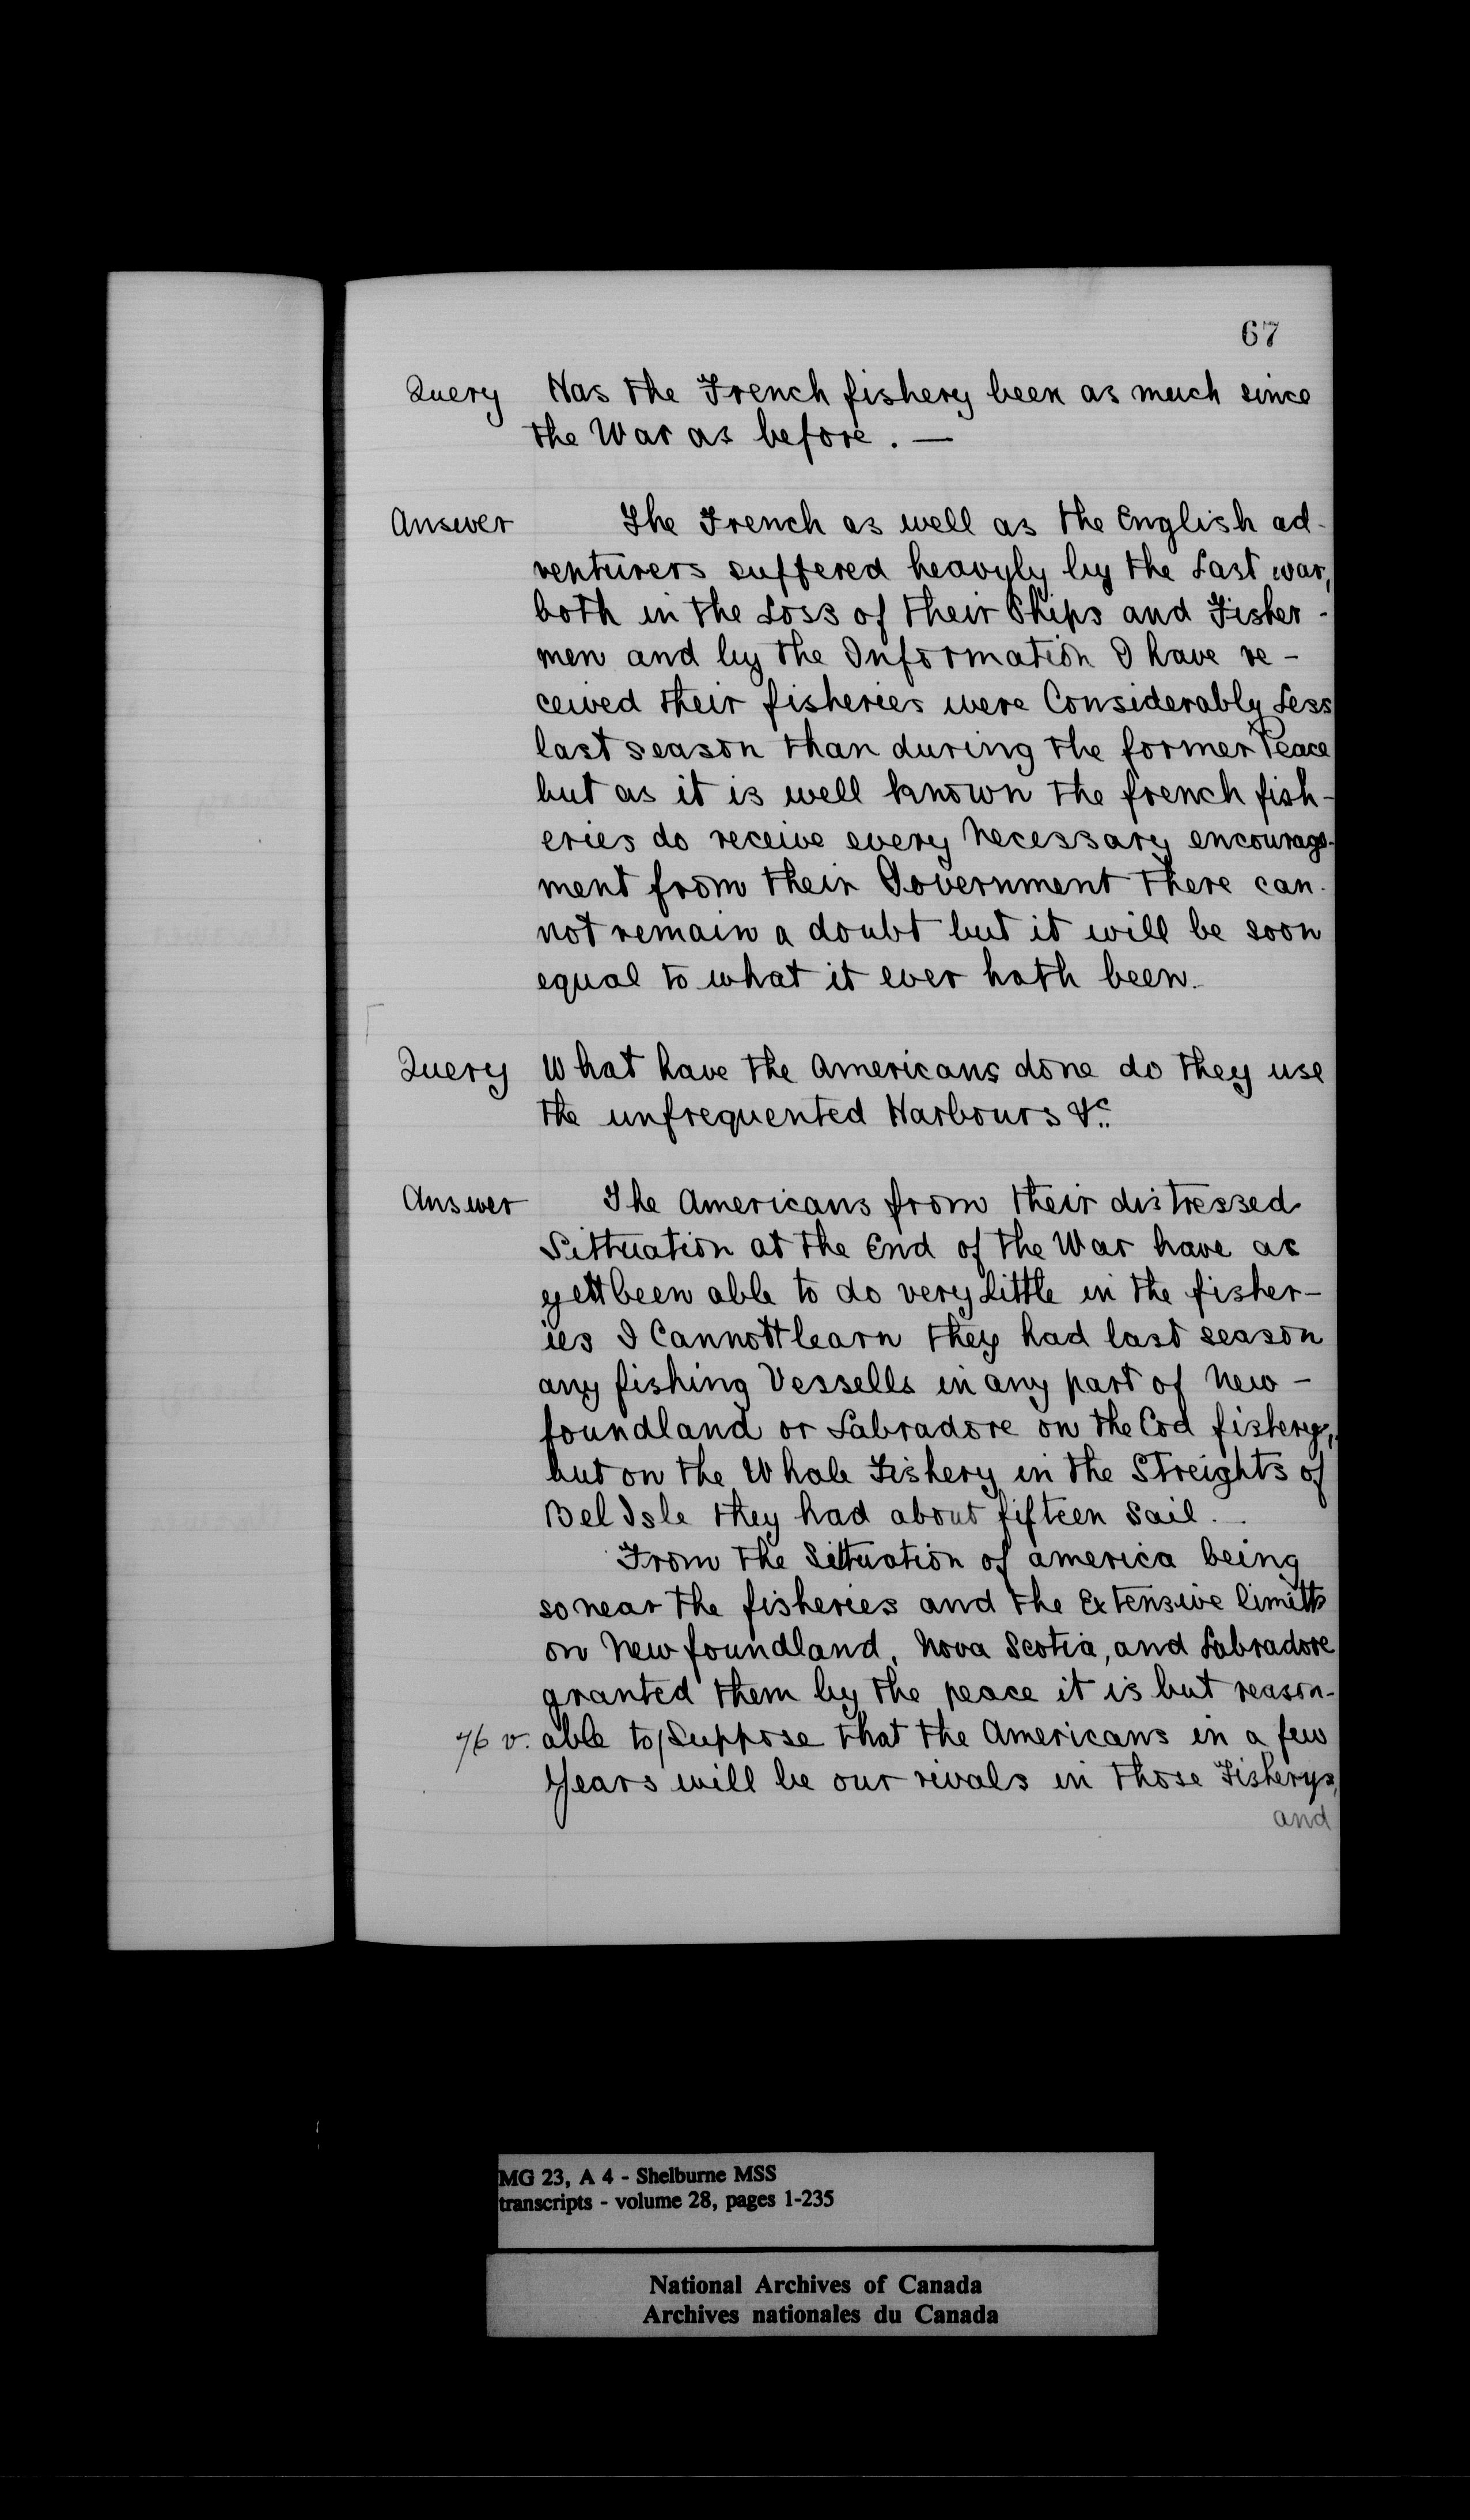 67
Query Has the French fishery been as much since
the War as before. —
Answer The French as well as the English ad-
venturers suffered heavyly by the Last war,
both in the Loss of their Ships and Fisher-
men and by the Information I have re-
ceived their fisheries were Considerably Less
last season than during the former Peace
but as it is well known the french fish-
eries do receive every Necessary encourage-
ment from their Government there can-
not remain a doubt but it will be soon
equal to what it ever hath been.
Query What have the Americans done do they use
the unfrequented Harbours &c.
Answer The Americans from their distressed
Sittuation at the End of the War have as
yett been able to do very Little in the fisher-
ies I Cannott learn they had last season
any fishing Vessells in any part of New-
foundland or Labradore on the Cod fishery,
but on the Whale Fishery in the Streights of
Bel Isle they had about fifteen Sail.
From the Sittuation of america being
so near the fisheries and the Extensive limitts
on Newfoundland, Nova Scotia, and Labradore
granted them by the peace it is but reason-
76 v. able to/Suppose that the Americans in a few
Years will be our rivals in those Fisherys,
and
MG 23, A 4 - Shelburne MSS
transcripts - volume 28, pages 1-235
National Archives of Canada
Archives nationales du Canada